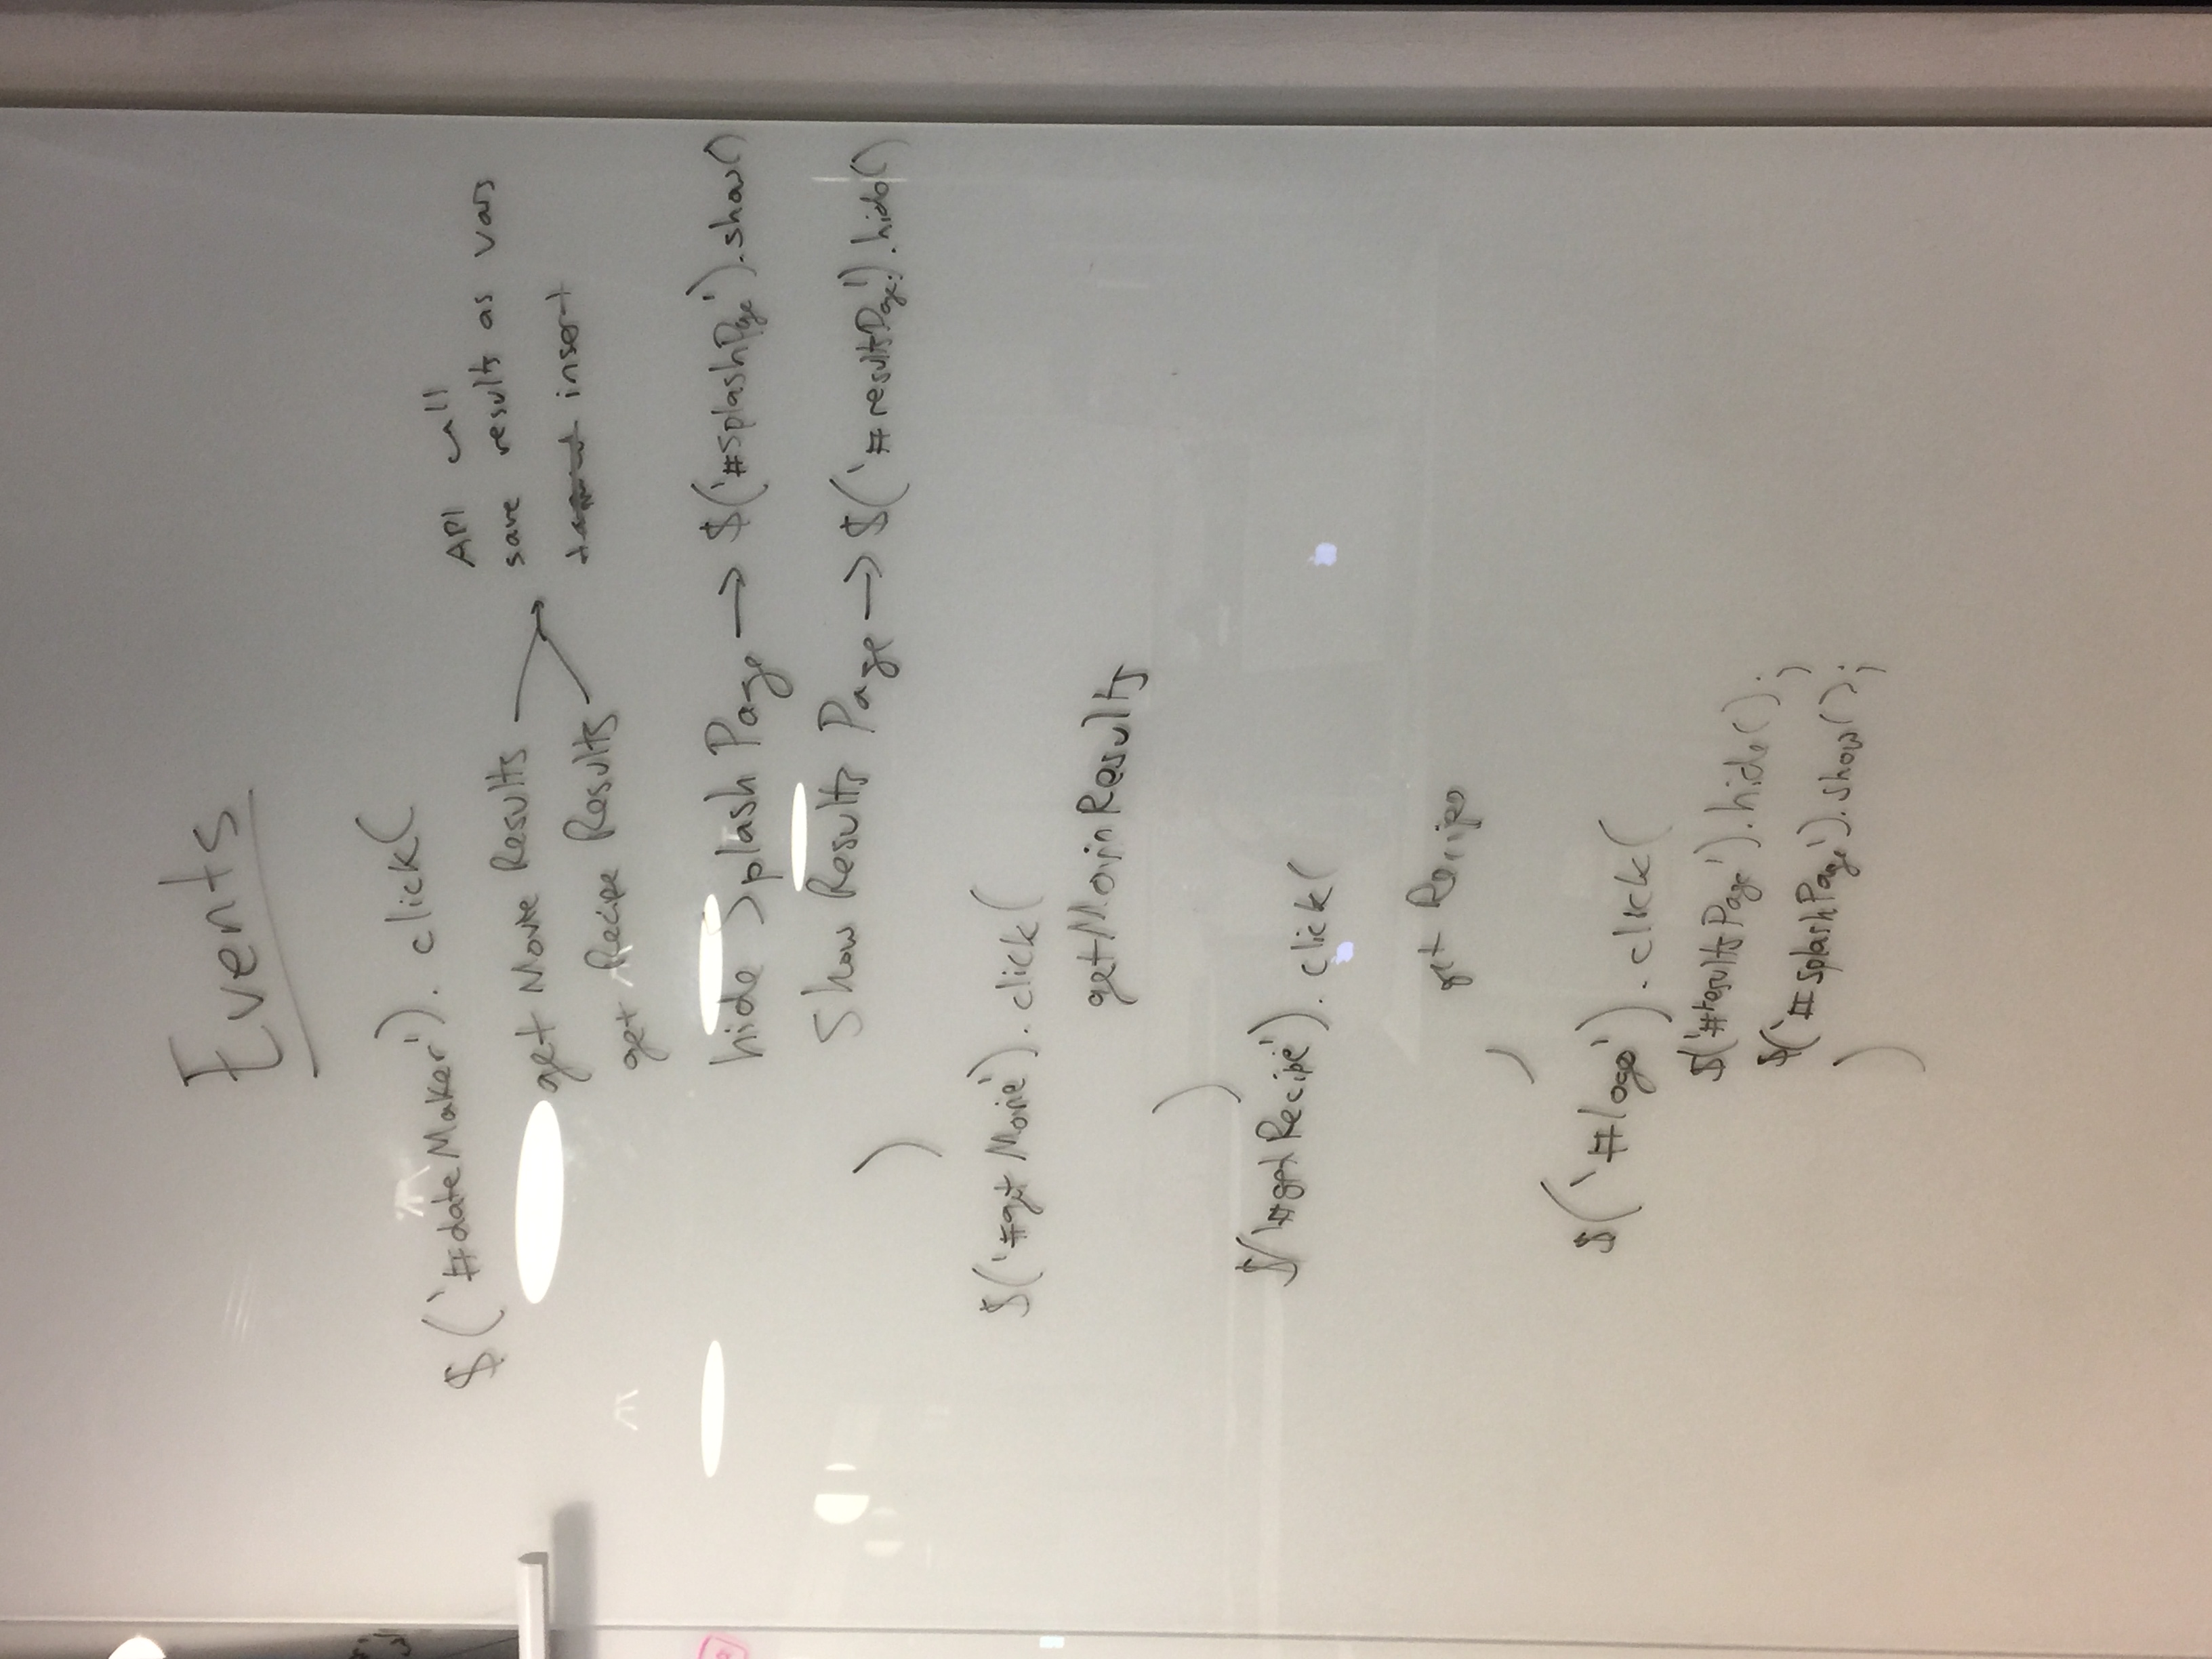 Events
$('#dateMaker').click(
get Movie Results
get Recipe Results
API call
save results as vars
insert
hide Splash Page → $('#splashPage').show()
Show Results Page → $('#resultsPage').hide()
)
$('#getMovie').click(
getMovieResults
)
$('#getRecipe').click(
get Recipe
)
$('#logo').click(
$('#resultsPage').hide();
$('#splashPage').show();
)